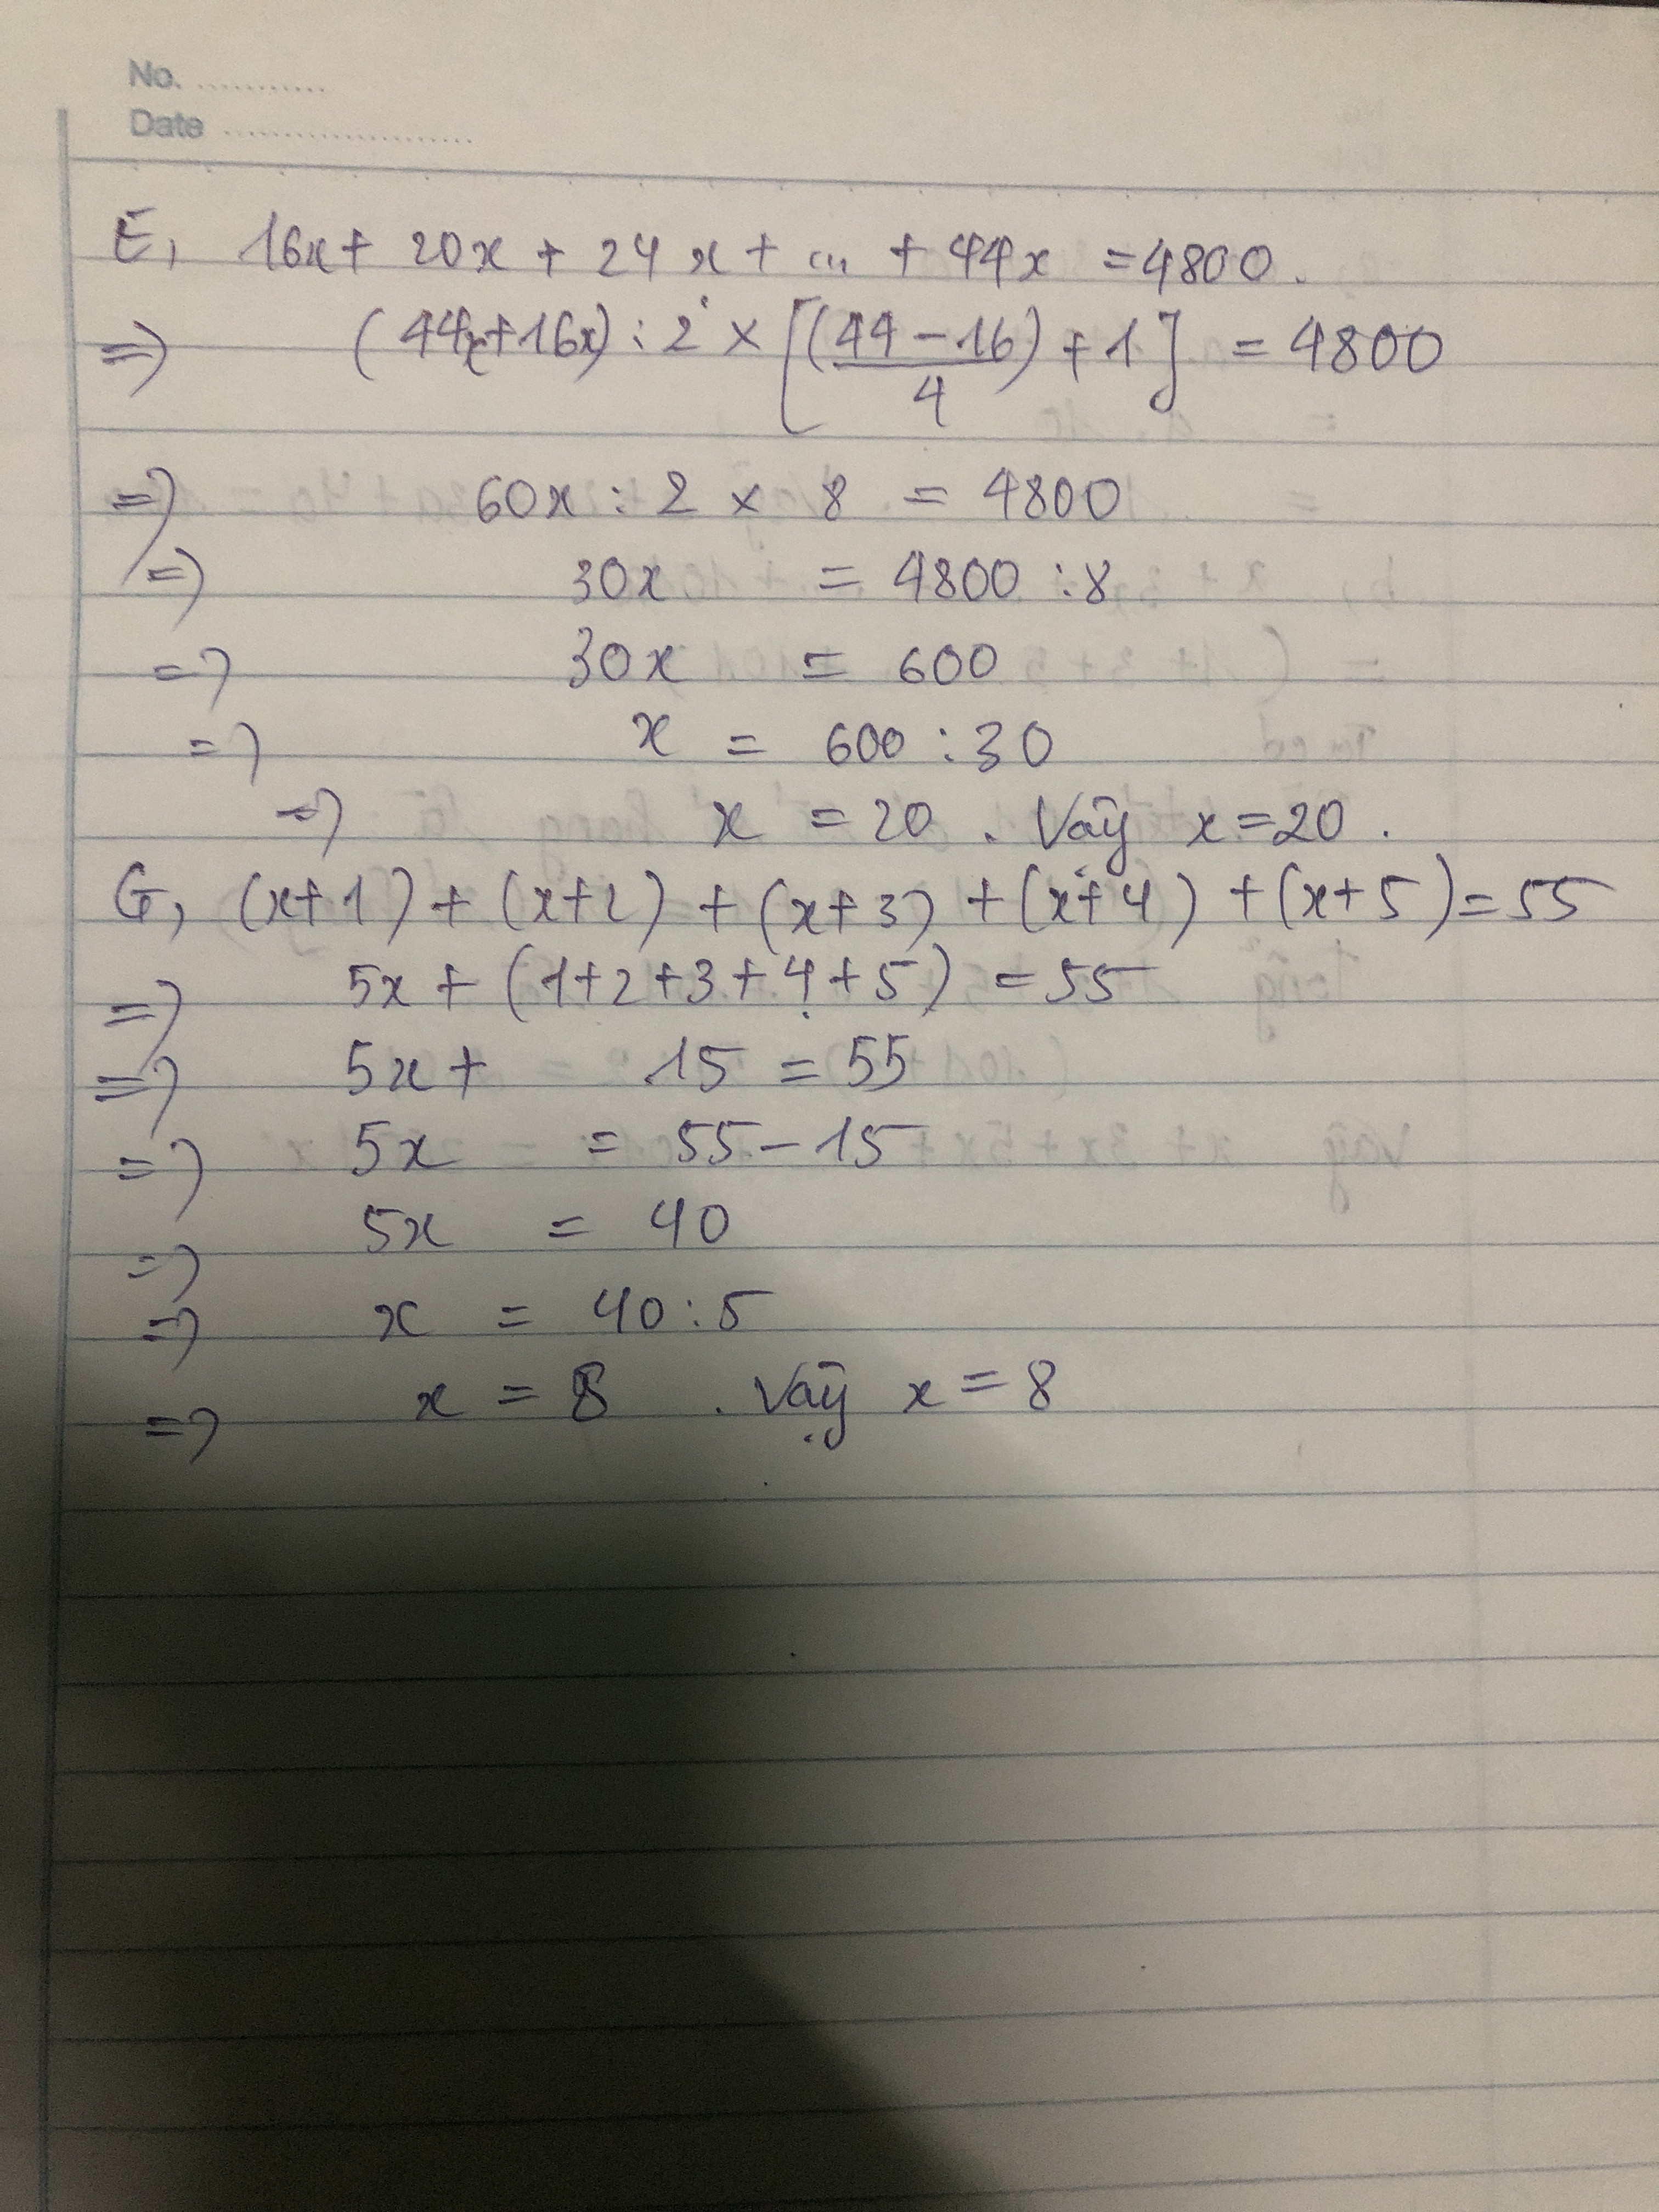 No. ...........
Date .....................
E, 16x + 20x + 24x + ... + 44x = 4800.
=> (44x+16x) : 2 × [(44-16)/4 + 1] = 4800
=> 60x : 2 × 8 = 4800
=> 30x = 4800 : 8
=> 30x = 600
=> x = 600 : 30
=> x = 20 . Vậy x = 20 .
G, (x+1) + (x+2) + (x+3) + (x+4) + (x+5) = 55
=> 5x + (1+2+3+4+5) = 55
=> 5x + 15 = 55
=> 5x = 55 - 15
=> 5x = 40
=> x = 40 : 5
=> x = 8 . Vậy x = 8